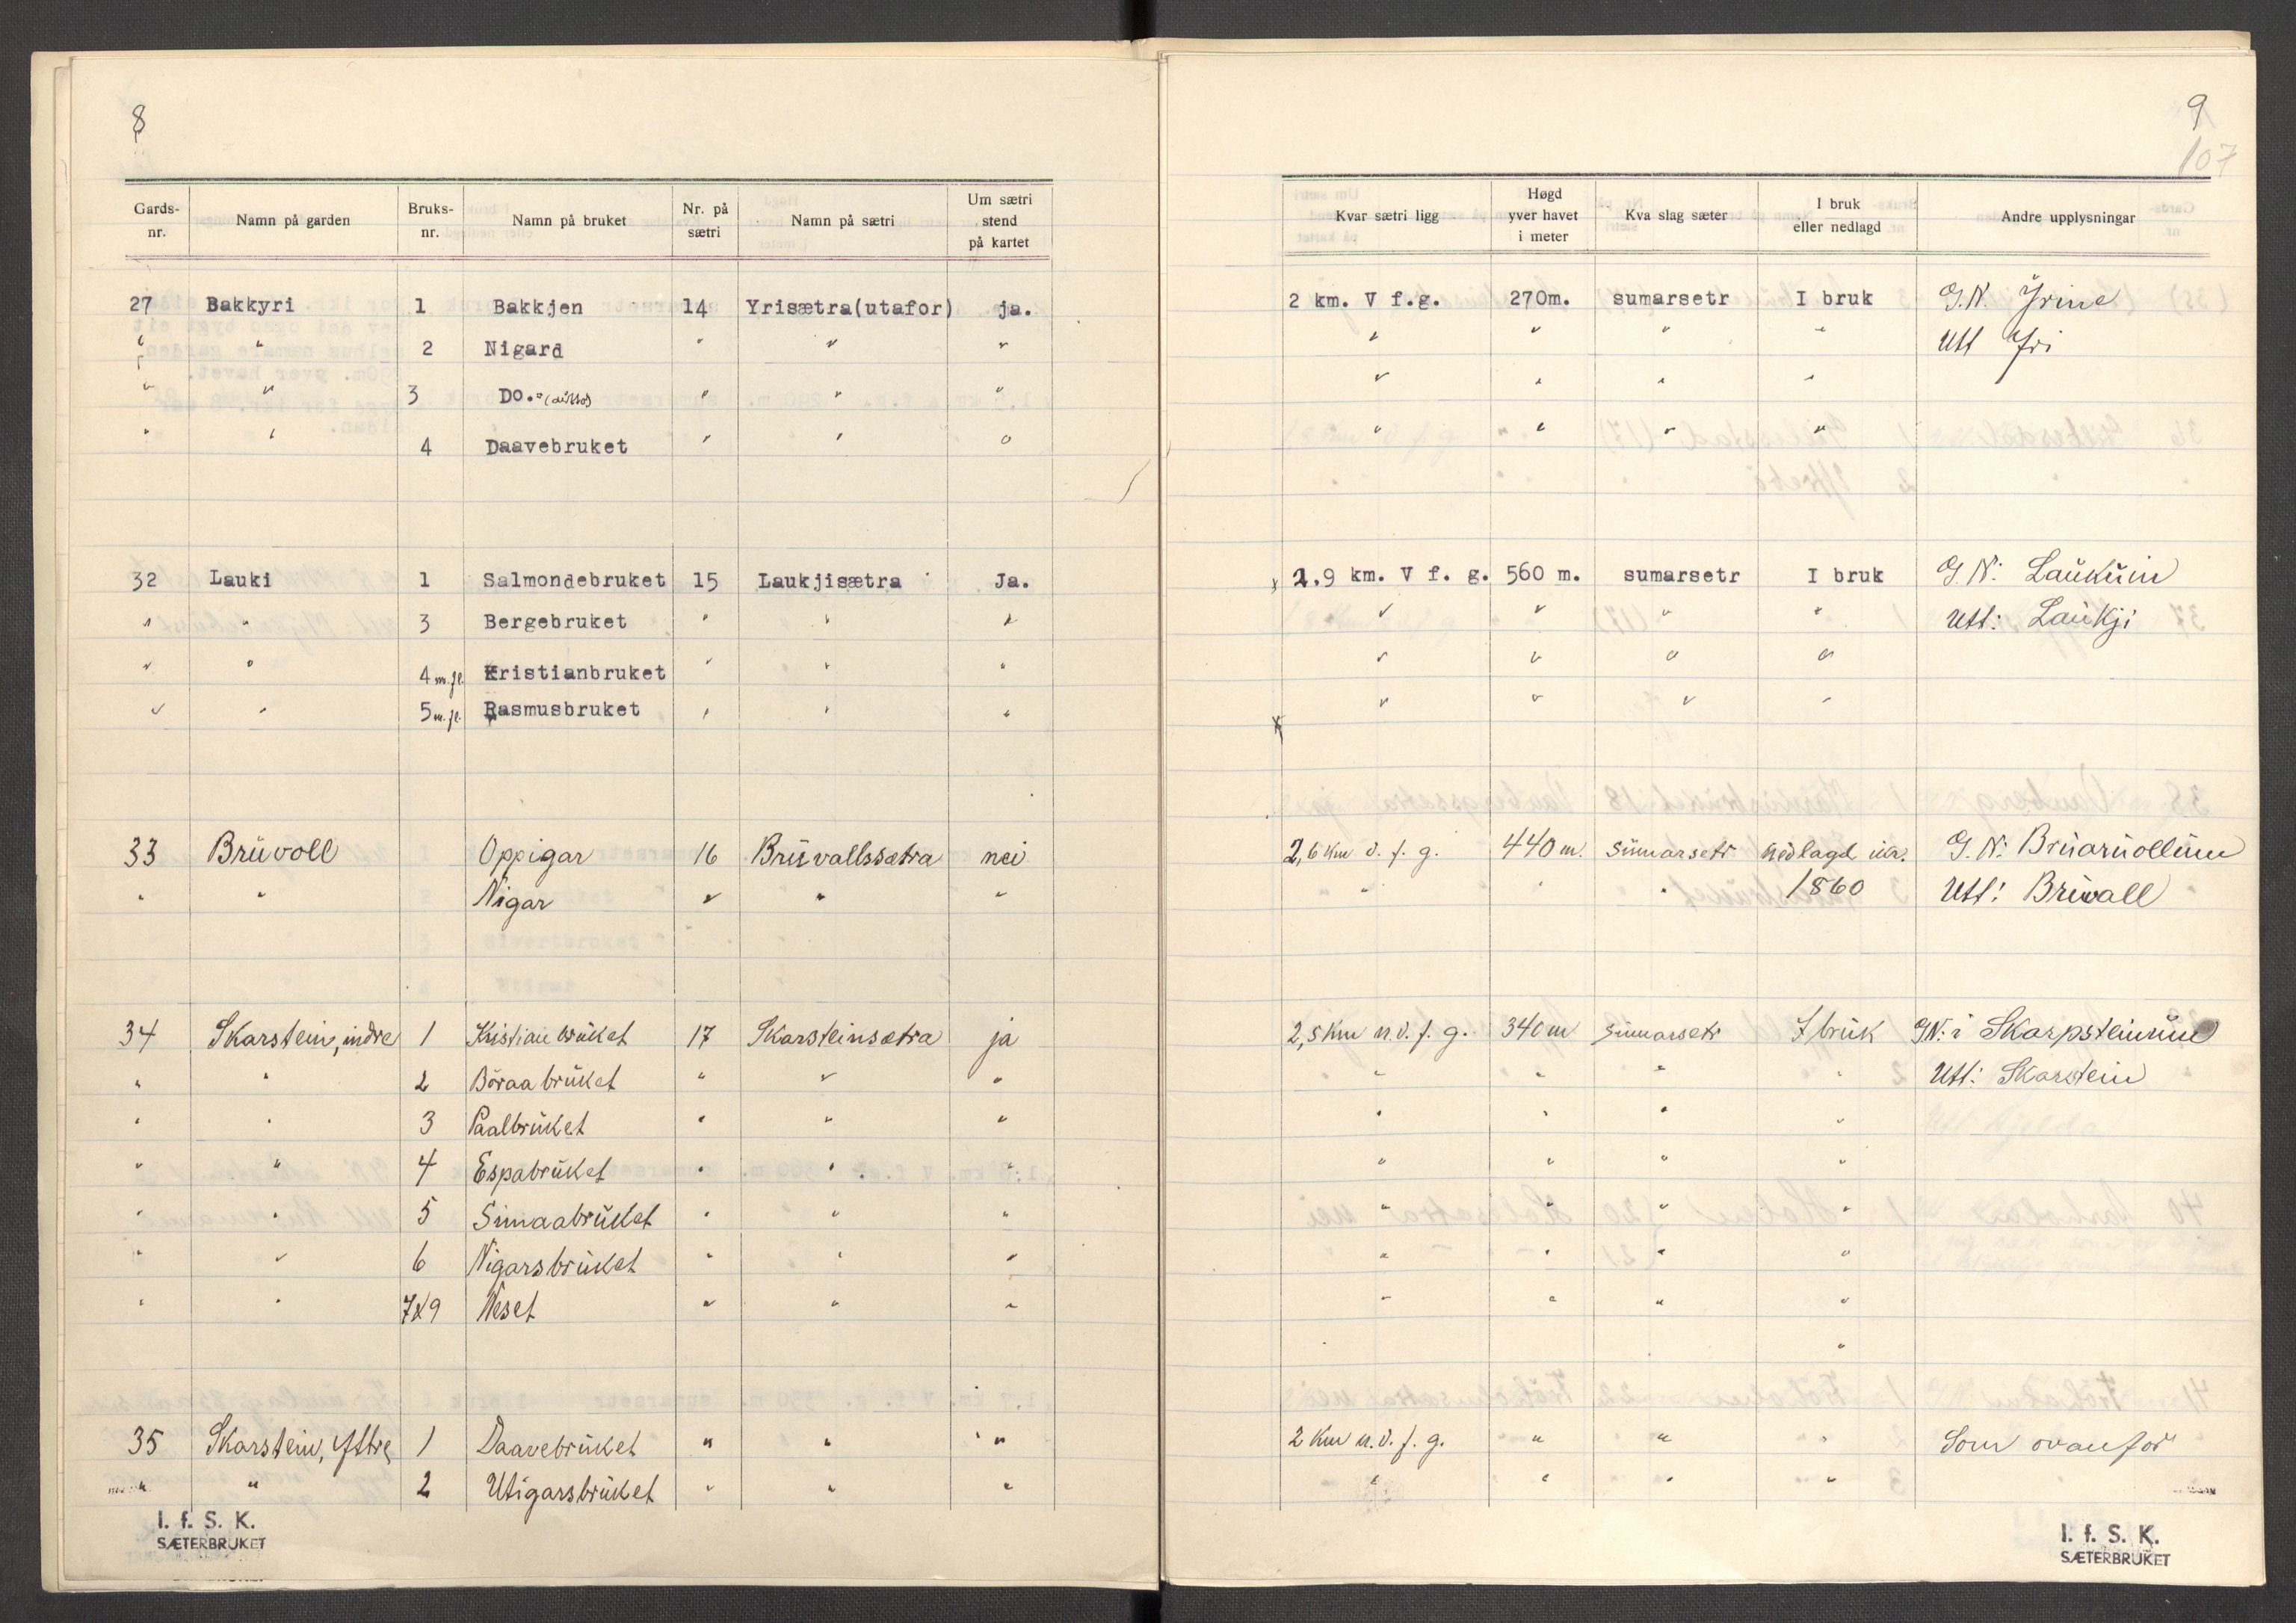 8
Gards-nr. Namn på garden Bruks-nr. Namn på bruket Nr. på sætri Namn på sætri Um sætri stend på kartet
27 Bakkyri 1 Bakkjen 14 Yrisætra(utafor) ja.
" " 2 Nigard " " "
" " 3 Do." (ditto) " " "
" " 4 Daavebruket " " "
32 Lauki 1 Salmondebruket 15 Laukjisætra Ja.
" " 3 Bergebruket " " "
" " 4 m.fl. Kristianbruket " " "
" " 5 m.fl. Rasmusbruket " " "
33 Brüvoll Oppigar 16 Brüvallssætra nei
" " Nigar " " "
34 Skarstein, indre 1 Kristianbrüket 17 Skarsteinsætra ja
" " 2 Böraabrüket " " "
" " 3 Paalbrüket " " "
" " 4 Espabrüket " " "
" " 5 Simaabrüket " " "
" " 6 Nigarsbrüket " " "
" " 7&9 Neset " " "
35 Skarstein, Yttre 1 Daavebrüket " " "
" " 2 Utigarsbrüket " " "
I. f. S. K.
SÆTERBRUKET
9
107
Kvar sætri ligg Høgd yver havet i meter Kva slag sæter I bruk eller nedlagd Andre upplysningar
2 km. V f.g. 270m. sumarsetr I bruk G.N. Yrine
" " " " Utt Yri
" " " "
" " " "
2,9 km. V f. g. 560 m. sumarsetr I bruk G.N: Laukuin
" " " " Utt: Laukji
" " " "
" " " "
2,6 km v. f. g. 440 m. sümarsetr nedlagd ikr. G.N: Brüarüollüm
" " " 1860 Utt: Brüvall
2,5 km n.v. f. g. 340 m sümarsetr I brük G.N: i Skarpsteinüm
" " " " Utt: Skarstein
" " " "
" " " "
" " " "
" " " "
" " " "
"
2 km n.v. f. g. " " " Som ovanfor
" " " "
I. f. S. K.
SÆTERBRUKET